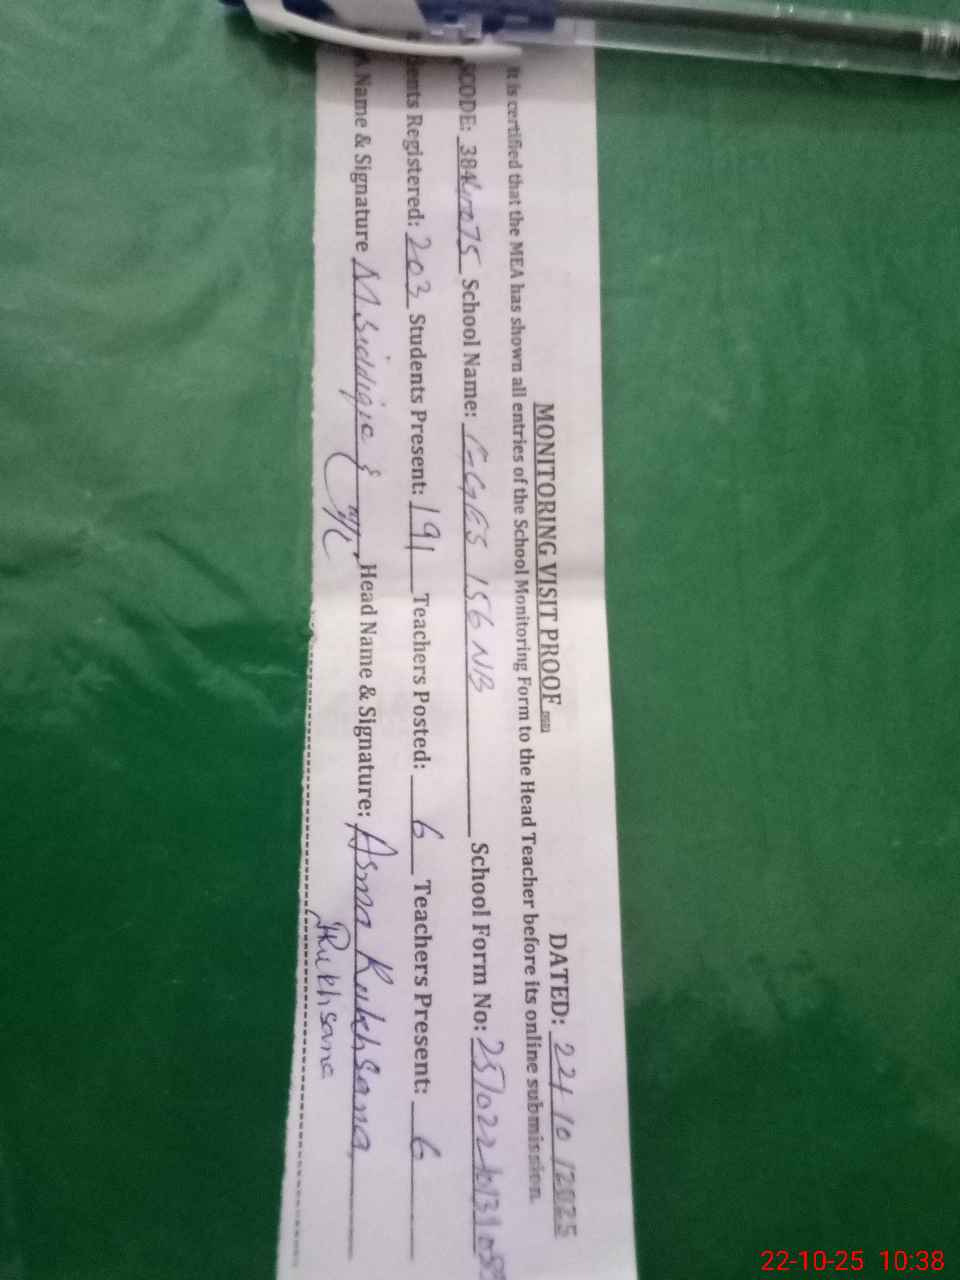 MONITORING VISIT PROOF DATED: 22/10/2025
It is certified that the MEA has shown all entries of the School Monitoring Form to the Head Teacher before its online submission.
CODE: School Name: GGES 156 NB School Form No:
dents Registered: 203 Students Present: 191 Teachers Posted: 6 Teachers Present: 6
A Name & Signature M. Siddique Head Name & Signature: Asma Rukhsana
Rukhsana
22-10-25 10:38